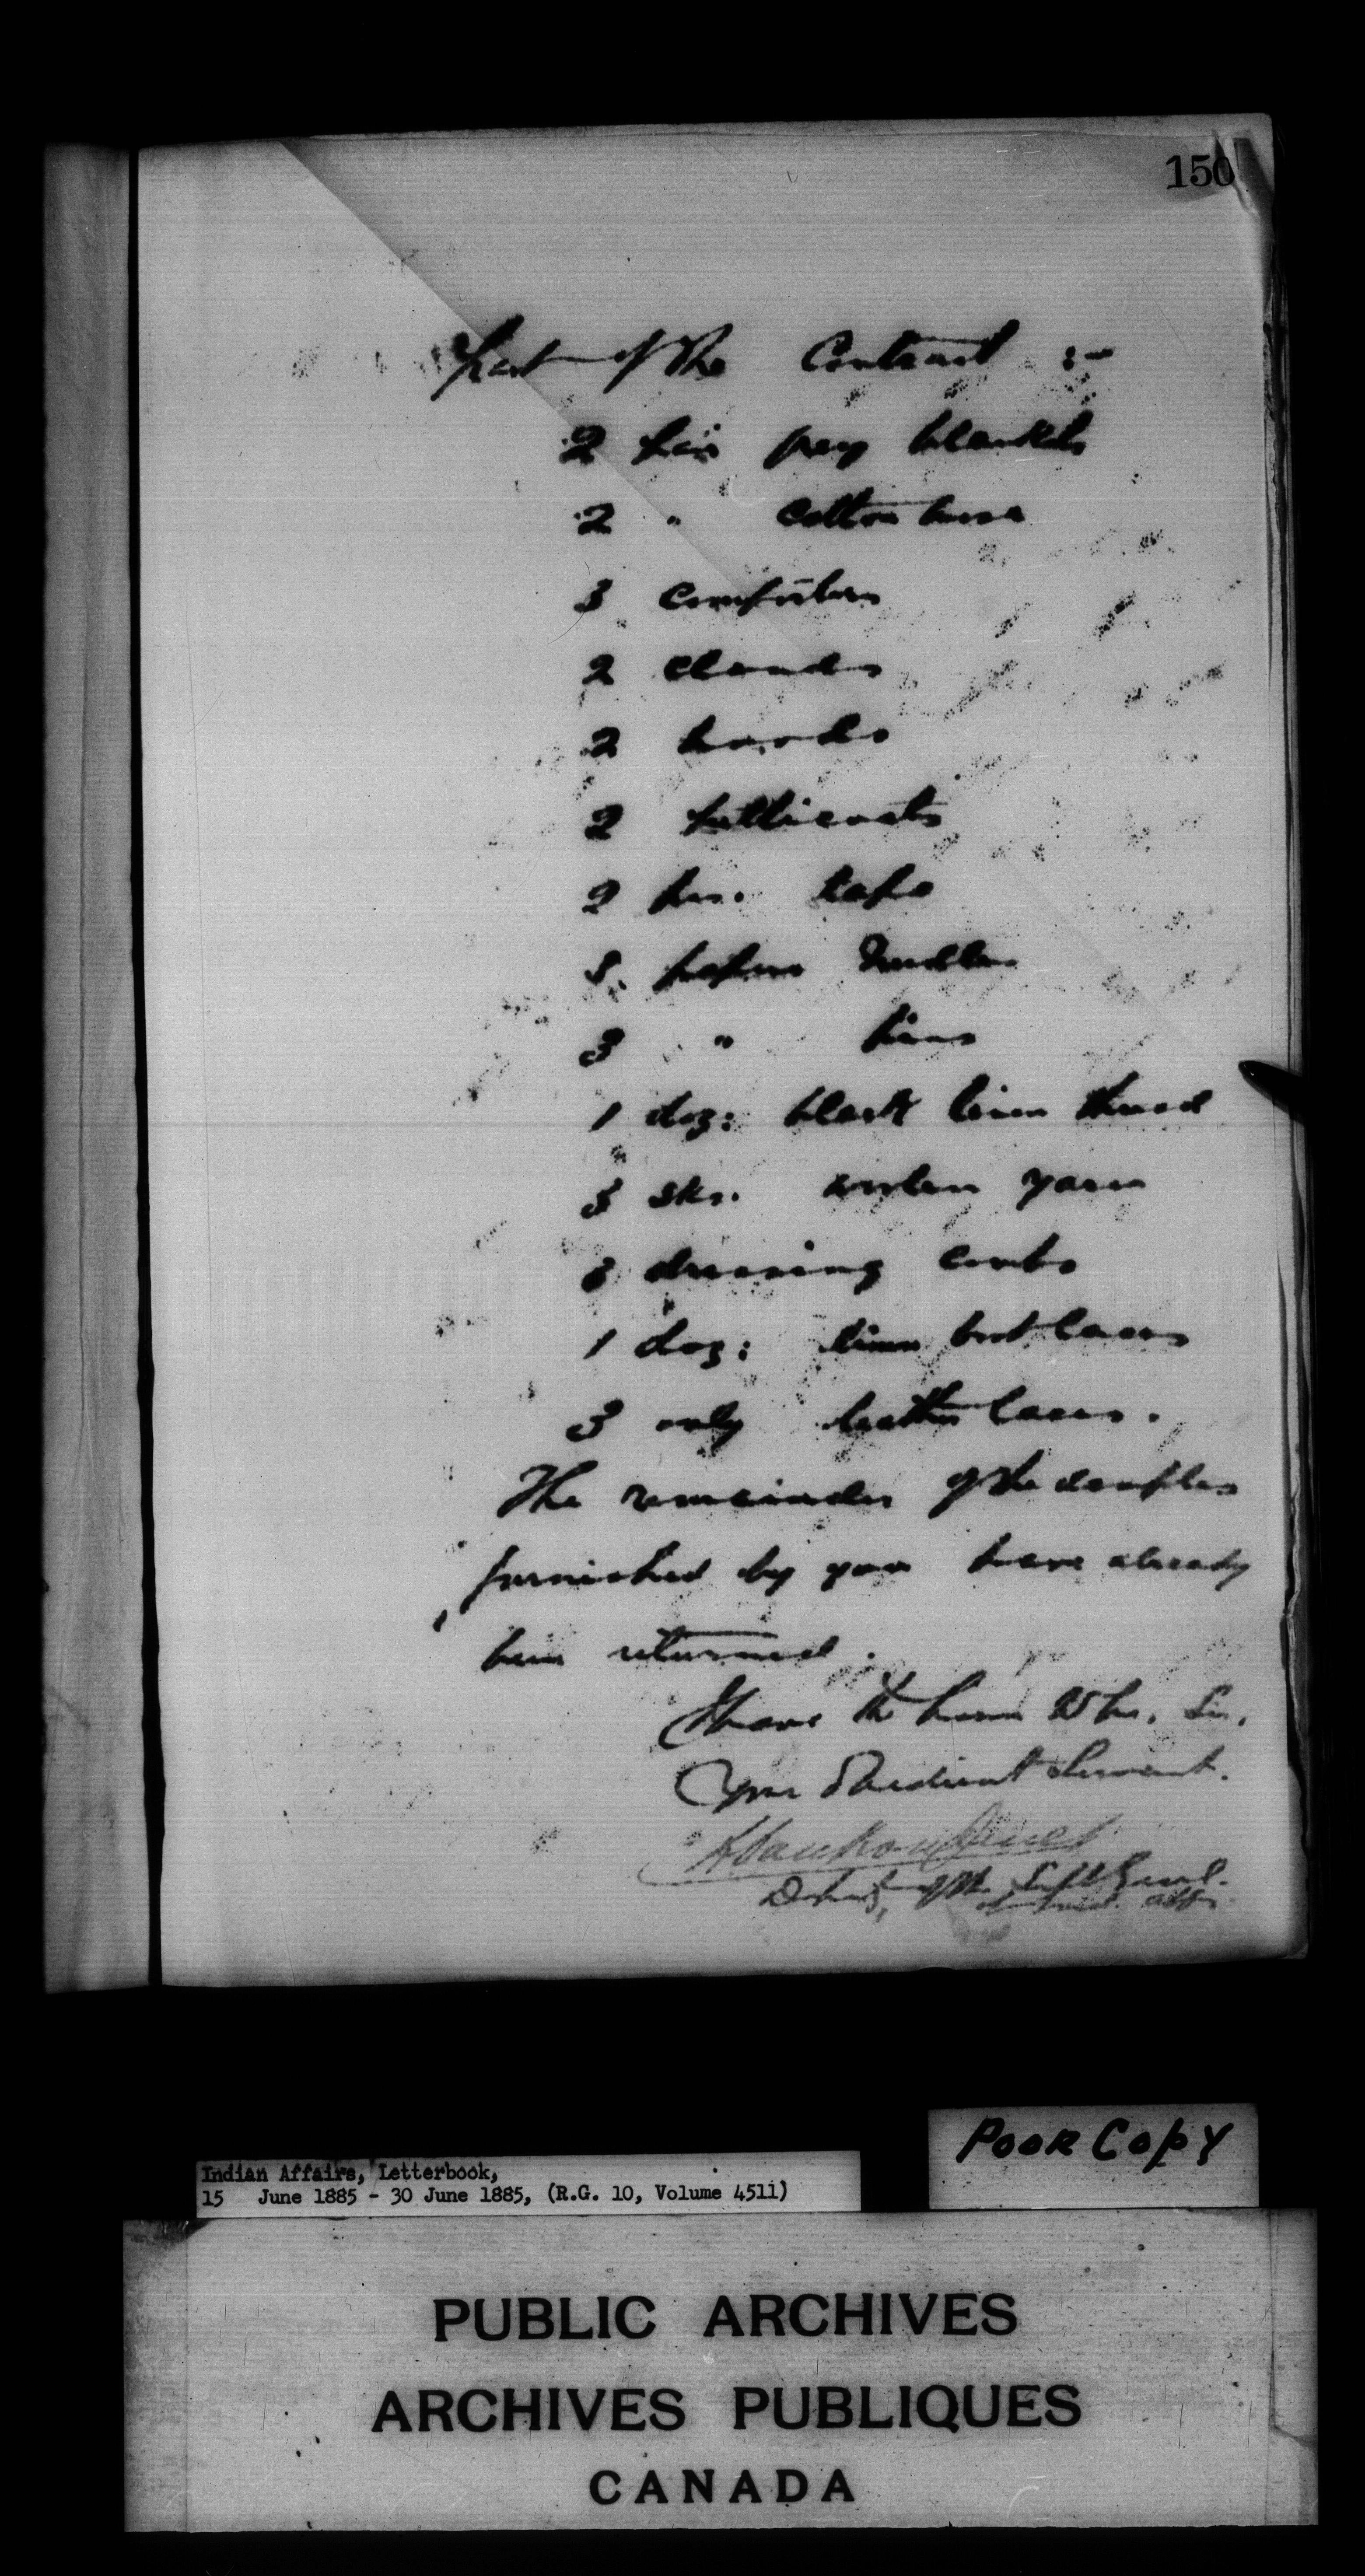 150
part of the Contract :-
2 pair grey blankets
2 " cotton hose
3 comforters
2 clouds
2 hoods
2 petticoats
2 pcs. tape
3 papers needles
3 " pins
1 doz: black linen thread
3 sks. woolen yarn
3 dressing combs
1 doz: linen boot laces
3 only leather laces.
The remainder of the samples
furnished by you have already
been returned.
I have the honor to be, Sir,
Your Obedient Servant.
of the Supt Genl.
of Ind. Affrs
Poor Copy
Indian Affairs, Letterbook,
15 June 1885 - 30 June 1885, (R.G. 10, Volume 4511)
PUBLIC ARCHIVES
ARCHIVES PUBLIQUES
CANADA